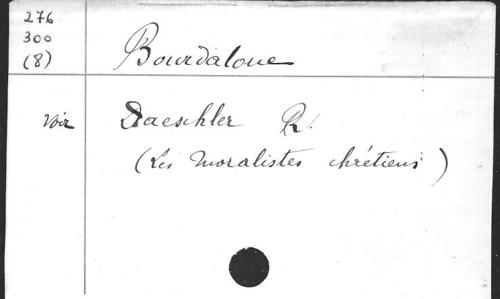 276
300
(8)
Bourdaloue
voir Daeschler R.
(Les moralistes chrétiens)